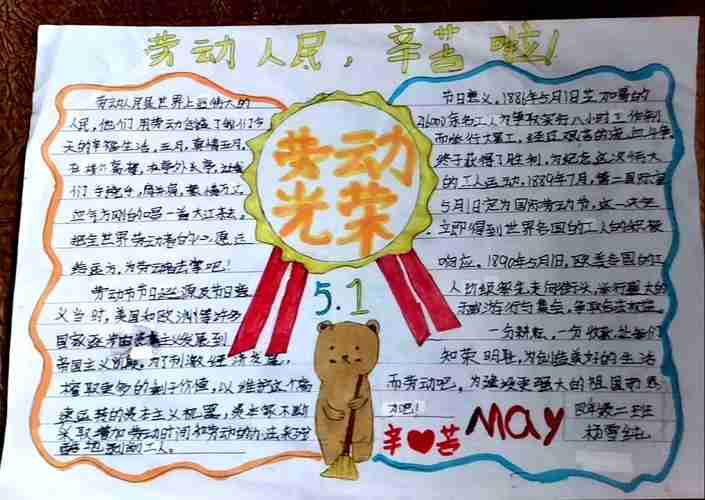 劳动人民,辛苦啦!
劳动人民是世界上最伟大的
人民,他们用劳动创造了我们今
天的幸福生活,五月,真情五月,
们
血气方刚的唱一首大江东去,
把全世界劳动者的心愿
给远方,为劳动
劳动节节日起源及节日意
义当时,美国和欧洲的许多
国家,逐步由资本主义发展到
帝国主义阶段,为了刺激经济发展,
榨取更多的剩余价值,以维护这个高
速运转的资本主义机器,资本家不断
采取增加劳动时间和劳动的办法来残
酷地剥削工人。
劳动
光荣
5.1
节日意义,1886年5月1日芝加哥的
216000余名工人为争取实行八小时工作制
而举行大罢工,经过艰苦的流血斗争,
终于获得了胜利,为纪念这次伟大
的工人运动,1889年7月,第二国际宣
5月1日定为国际劳动节,这一决定
立即得到世界各国的工人的积极
响应。1890年5月1日,欧美各国的工
人阶级率先走向街头,举行盛大的
示威游行与集会,争取合法权益。
一分耕耘,一分收获,让我们
知荣明耻,为创造美好的生活
而劳动吧,为建设更强大的祖国而
吧!
辛苦
MAY
四年级二班
杨雪纯